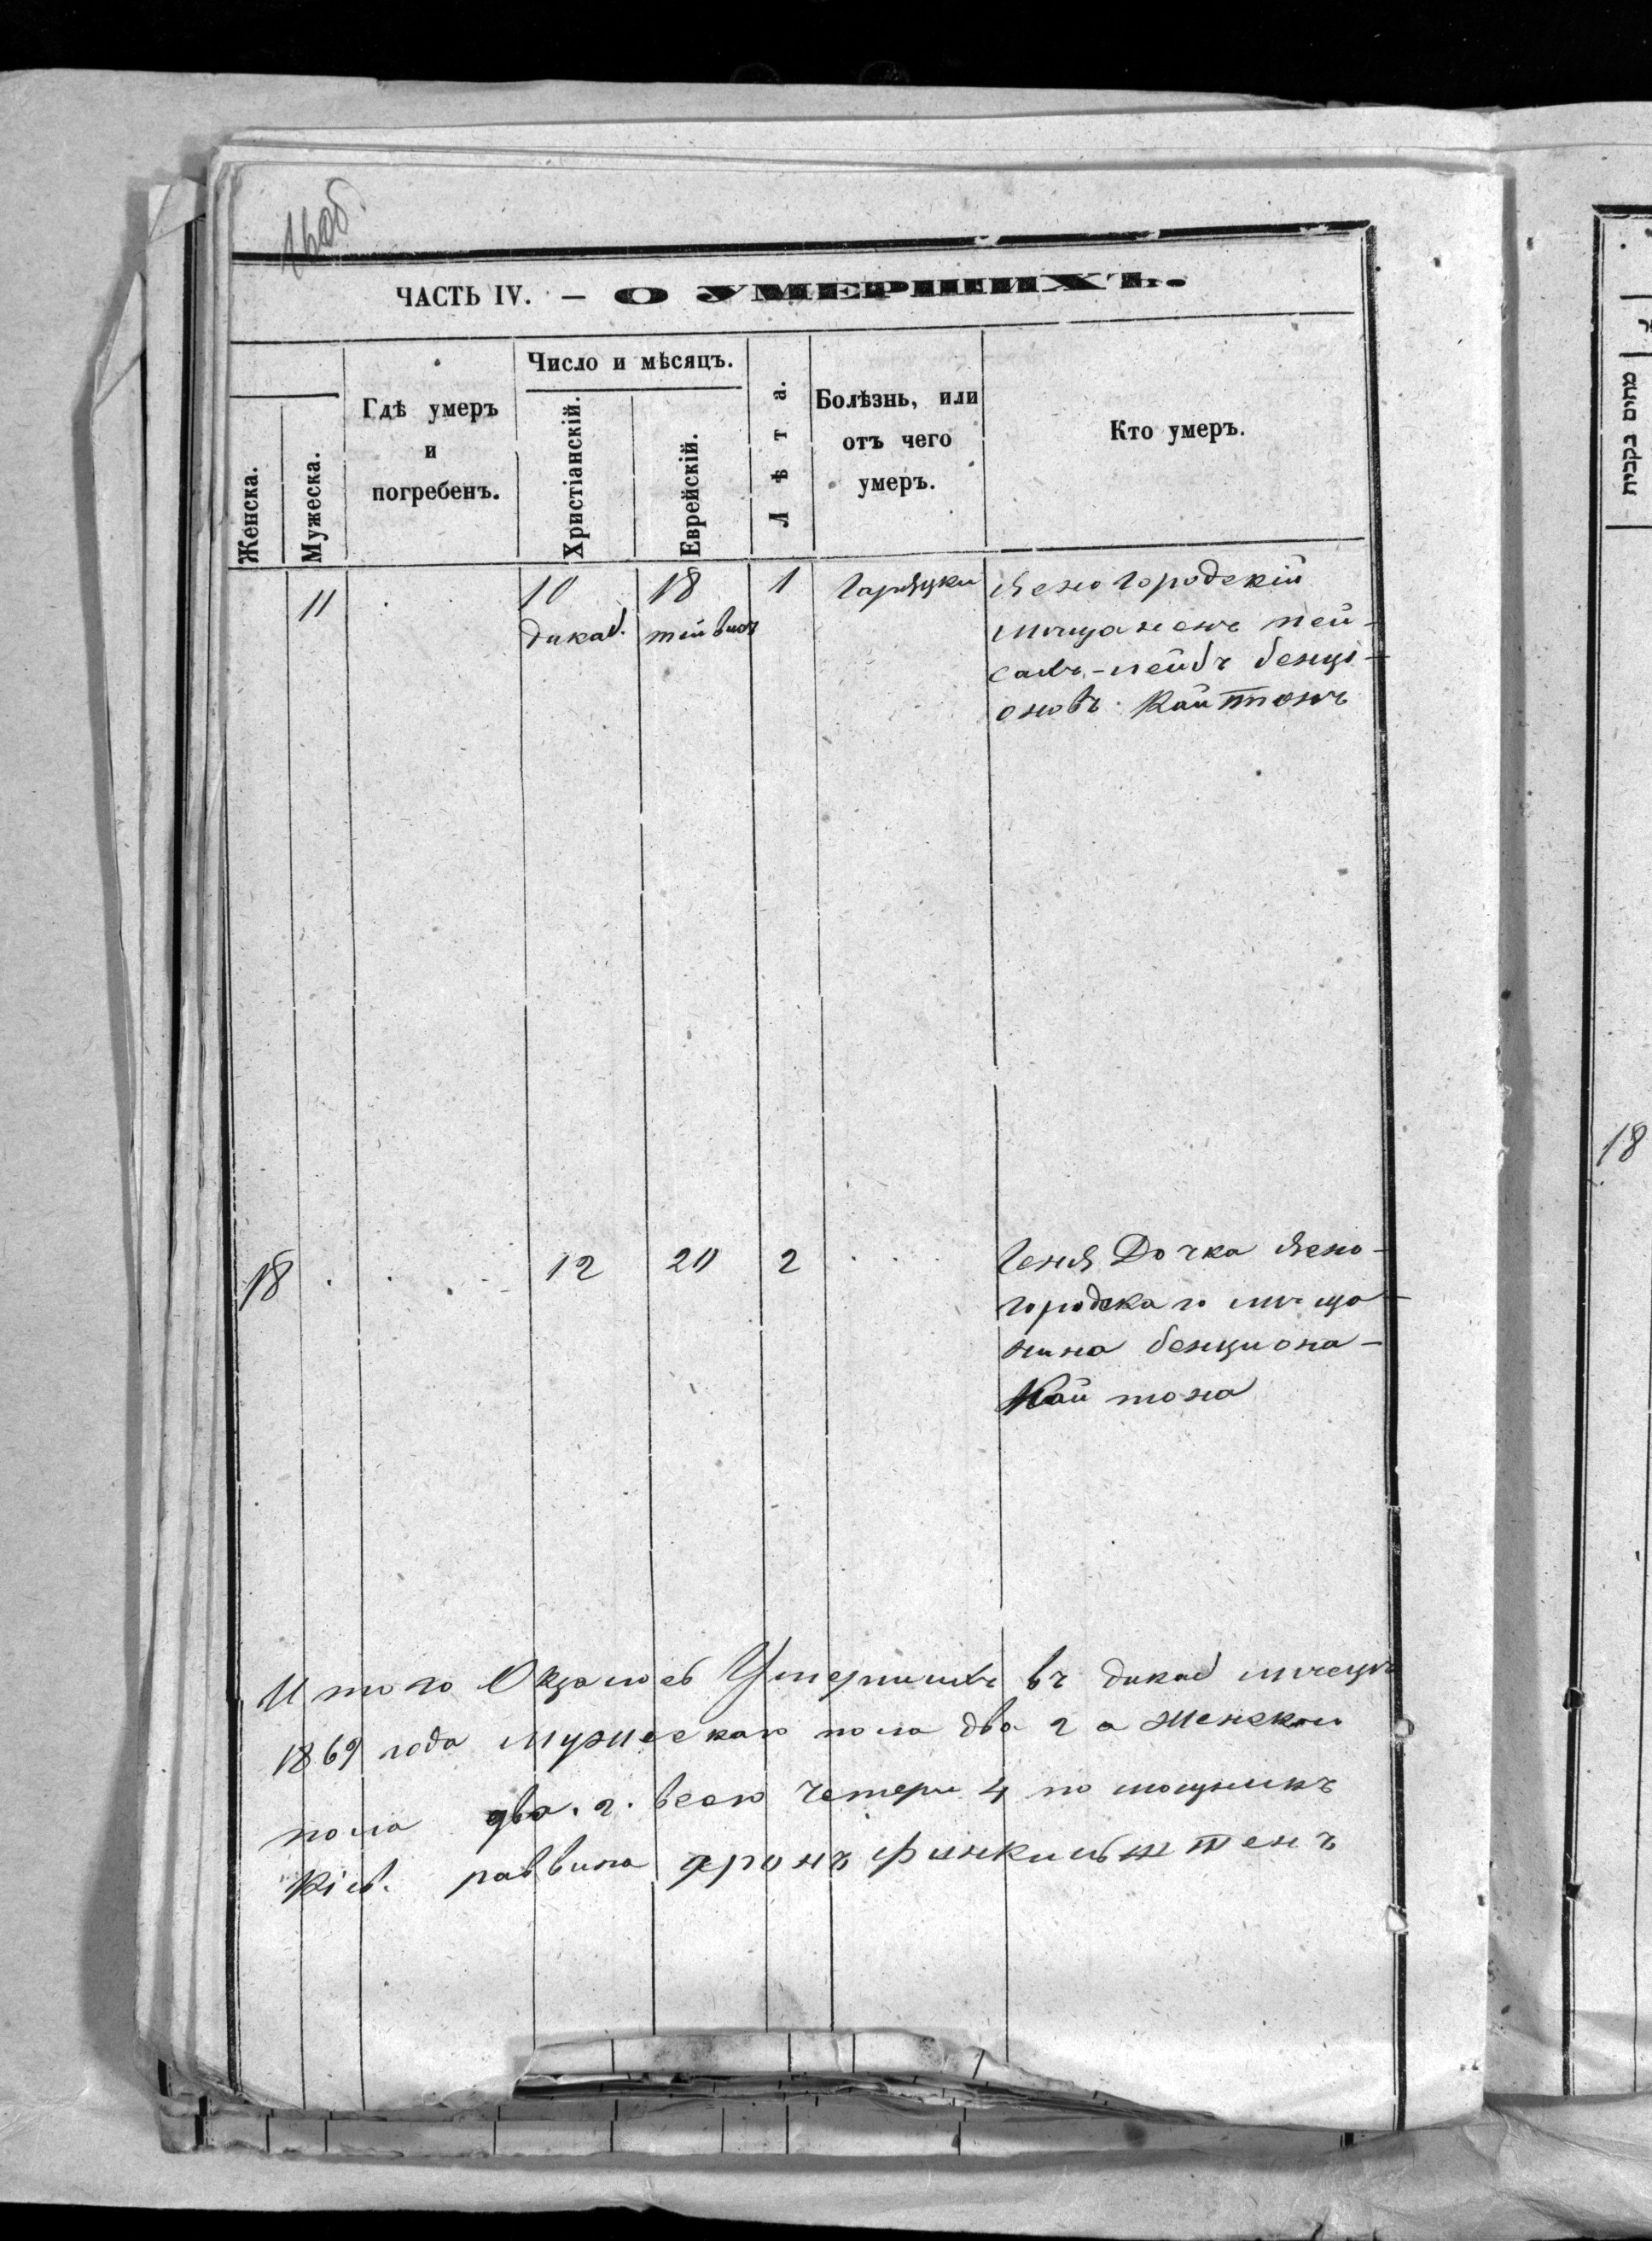 16об.
ЧАСТЬ IV. — О УМЕРШИХЪ.
Женска.
Мужеска.
Гдѣ умеръ
и
погребенъ.
Число и мѣсяцъ.
Христіанскій.
Еврейскій.
Лѣта.
Болѣзнь, или
отъ чего
умеръ.
Кто умеръ.
11
10
дикаб.
18
тейвис
1
Гарячки
Ясногородскій
мищаненъ пей-
сахъ-лейбъ бенци-
оновъ Кайтонъ
18
12
20
2
Геня Дочка Ясно-
городскаго мища-
нина бенциона-
Кайтона
Итого Оказалось Умершихъ въ дикаб мисеци
1869 года мужескаго пола два 2 а Женскаго
пола два. 2. всего Четери 4 помощникъ
Кіев. раввина
מתים נקבות
18